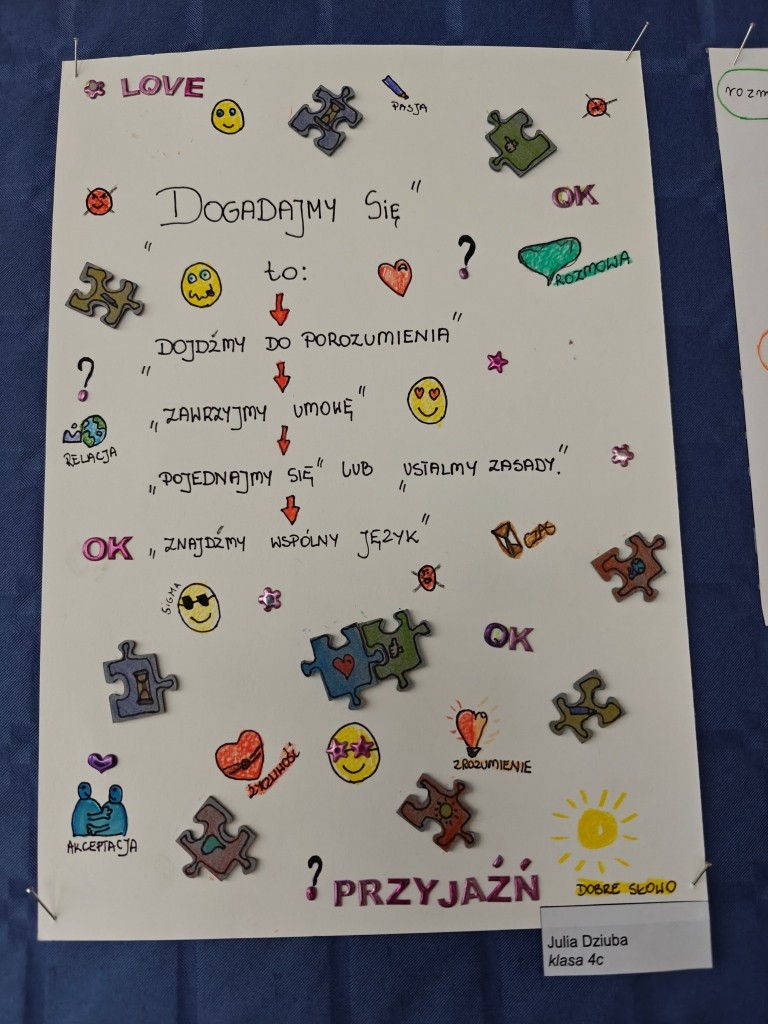 LOVE
PASJA
OK
„DOGADAJMY SIĘ"
to:
?
ROZMOWA
„DOJDŹMY DO POROZUMIENIA"
?
„ZAWRZYJMY UMOWĘ"
RELACJA
„POJEDNAJMY SIĘ" LUB „USTALMY ZASADY."
OK „ZNAJDŹMY WSPÓLNY JĘZYK"
CZAS
SIGMA
OK
ŻYCZLIWOŚĆ
ZROZUMIENIE
AKCEPTACJA
? PRZYJAŹŃ
DOBRE SŁOWO
Julia Dziuba
klasa 4c
rozm